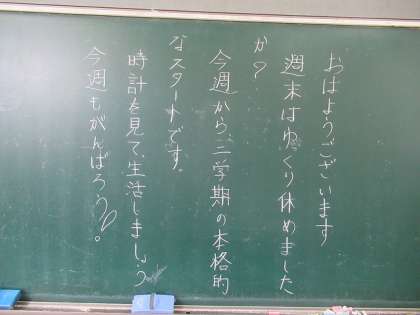 おはようございます
週末はゆっくり休めました
か？
今週から、二学期の本格的
なスタートです。
時計を見て、生活しましょう
今週もがんばろう。